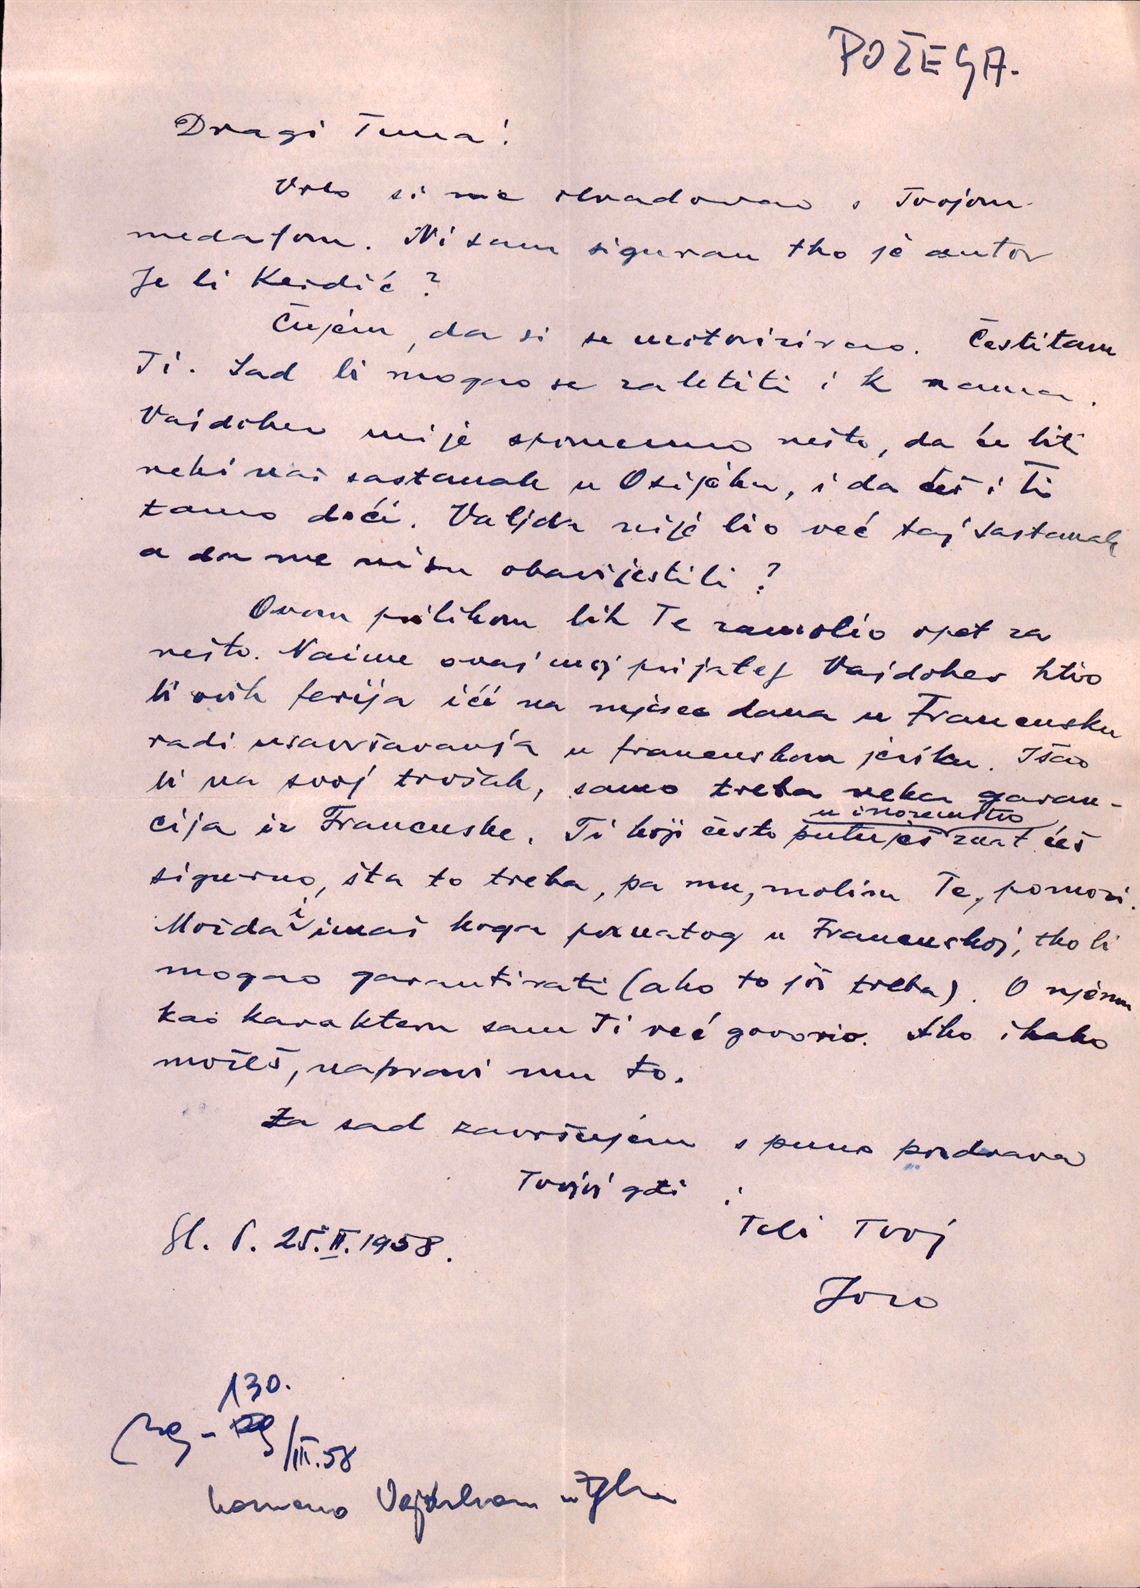 POŽEGA.
Dragi Tuna!
Vrlo si me obradovao s Tvojom
medaljom. Nisam siguran tko je autor
Je li Kerdić?
Čujem, da si se motorizirao. Čestitam
Ti. Sad bi mogao se zaletiti i k nama.
Vajdoher mi je spomenuo nešto, da će biti
neki naš sastanak u Osijeku, i da ćeš i Ti
tamo doći. Valjda nije bio već taj sastanak
a da me nisu obavijestili?
Ovom prilikom bih Te zamolio opet za
nešto. Naime ovaj moj prijatelj Vajdoher htio
bi ovih ferija ići na mjesec dana u Francusku
radi usavršavanja u francuskom jeziku. Išao
bi na svoj trošak, samo treba neka garan-
cija iz Francuske. Ti koji često putuješ u inozemstvo znat ćeš
sigurno, šta to treba, pa mu, molim Te, pomozi.
Možda i imaš koga poznatog u Francuskoj, tko bi
mogao garantirati (ako to još treba). O njemu
kao karakteru sam Ti već govorio. Ako ikako
možeš, napravi mu to.
Za sad završujem s puno pozdrava
Tvojoj gđi i
Tebi Tvoj
Joso
Sl. P. 25.II.1958.
130.
Zg - /III.58
Vajdoherom u Zgbu